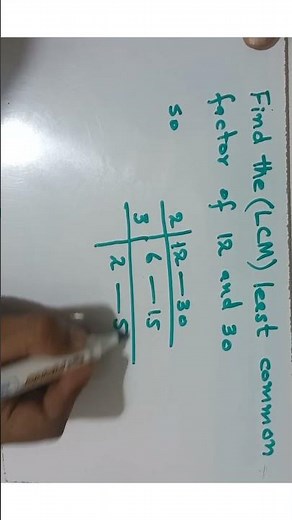 Find the (LCM) least common
factor of 12 and 30
so
2 | 12 — 30
3 | 6 — 15
| 2 — 5